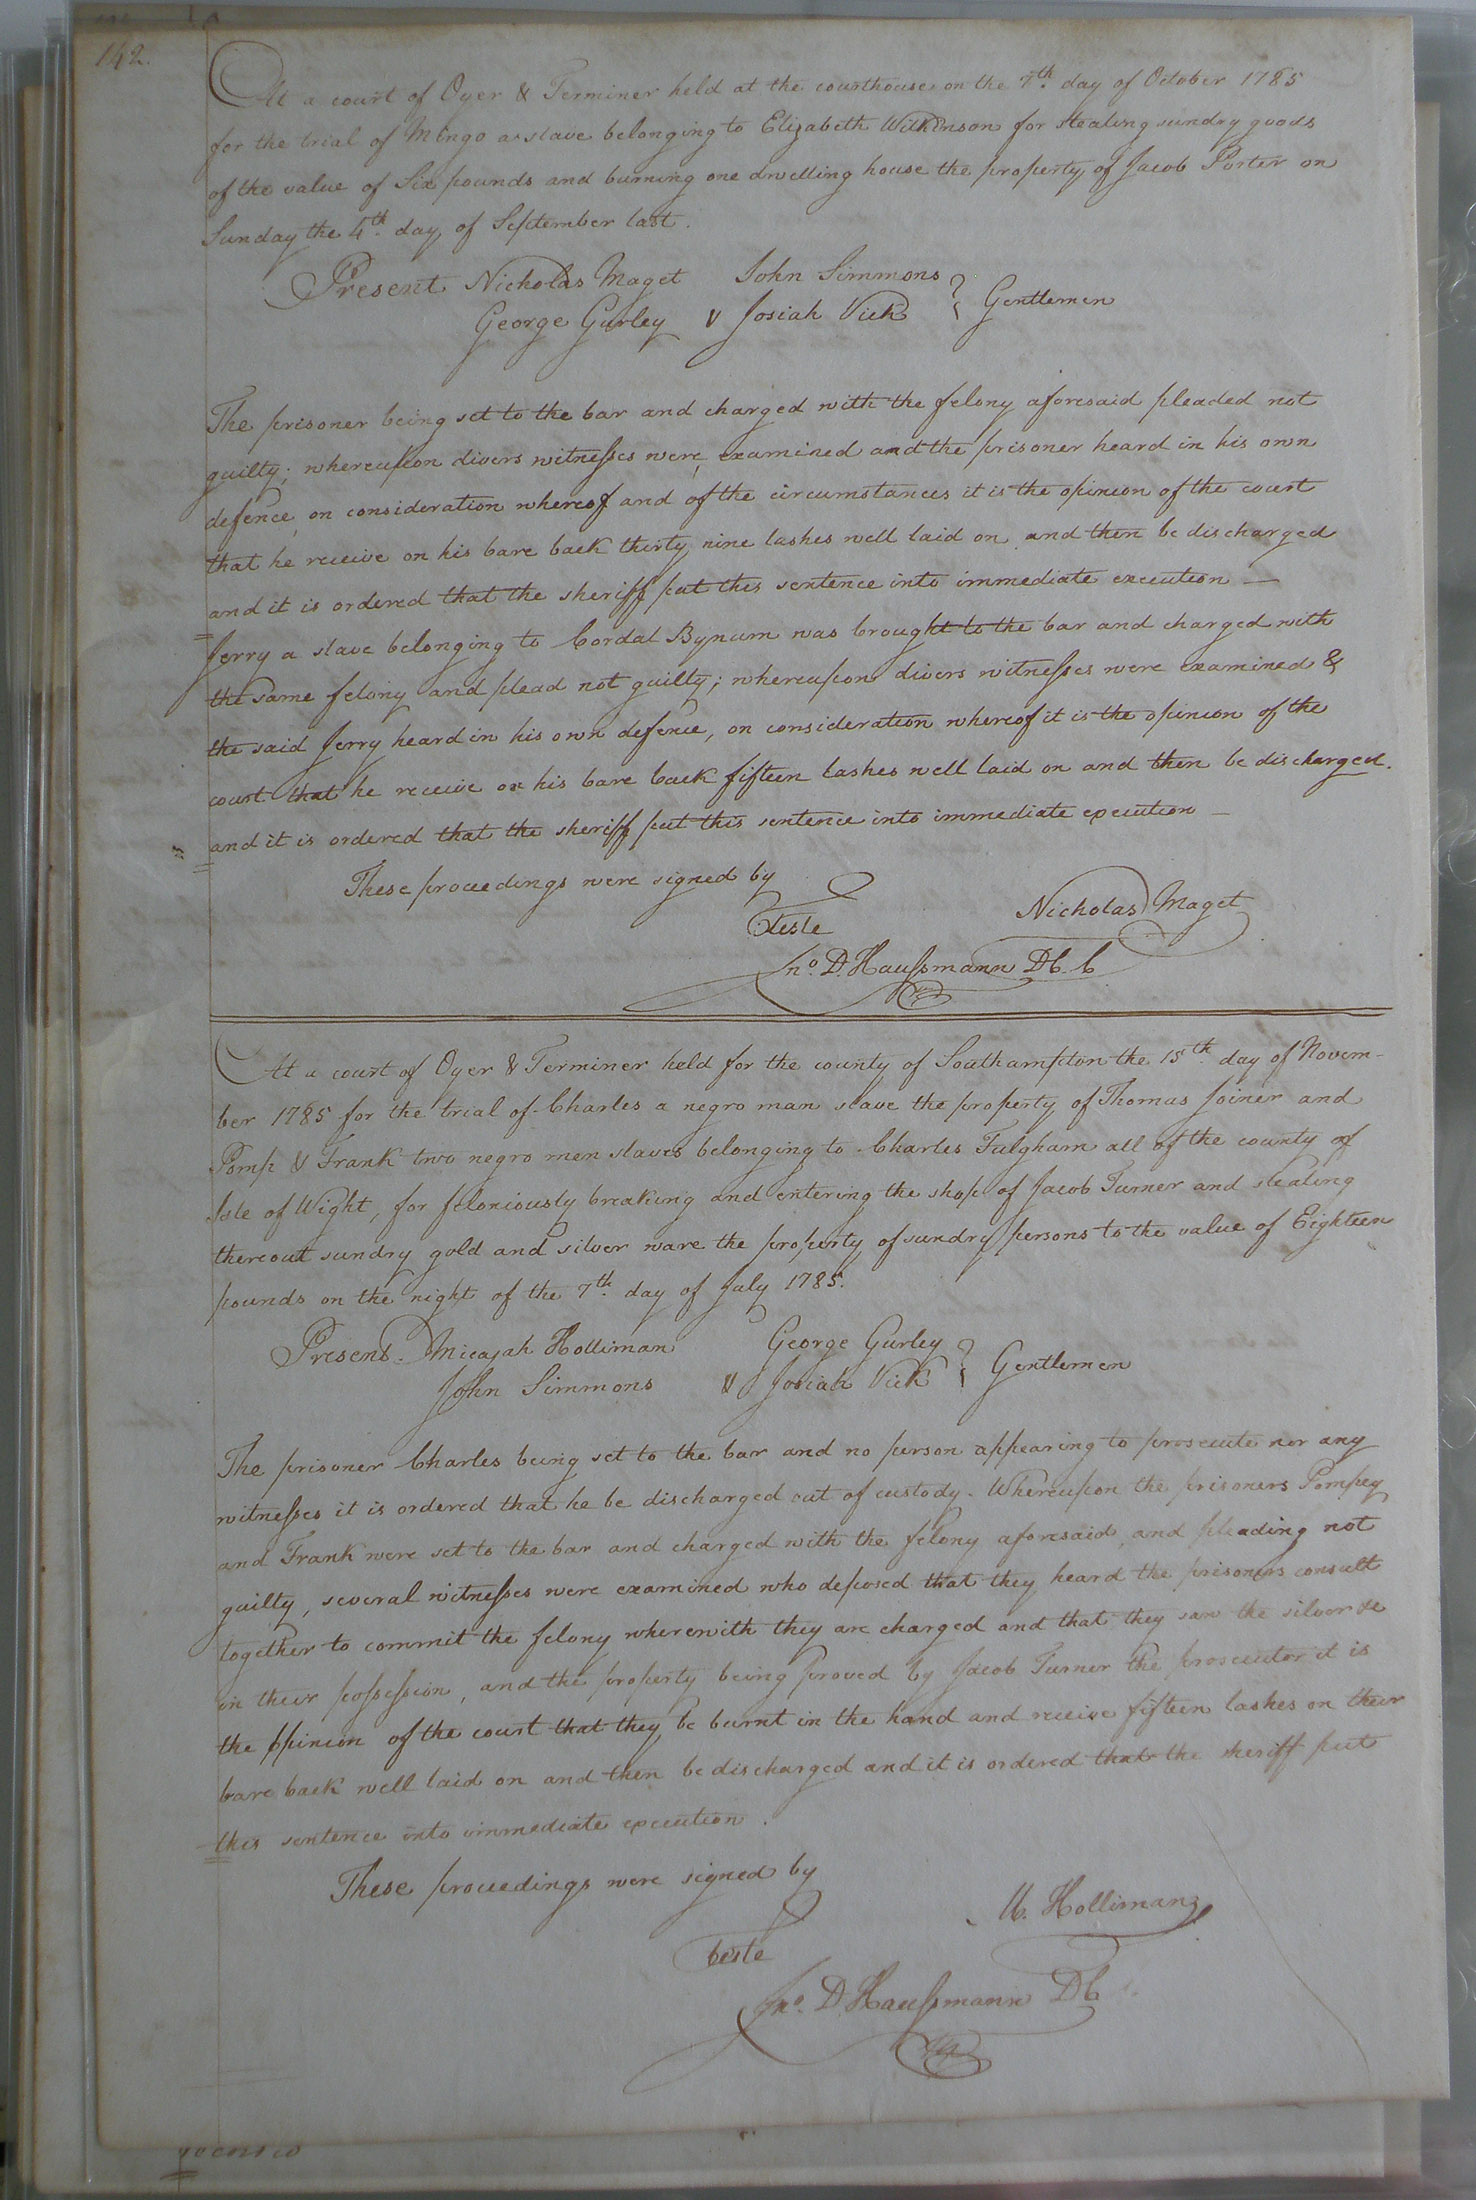 142.
At a court of Oyer & Terminer held at the courthouse on the 7th day of October 1785
for the trial of Mingo a slave belonging to Elizabeth Wilkinson for stealing sundry goods
of the value of Six pounds and burning one dwelling house the property of Jacob Porter on
Sunday the 4th day of September last.
Present Nicholas Maget John Simmons
George Gurley & Josiah Vick } Gentlemen
The prisoner being set to the bar and charged with the felony aforesaid pleaded not
guilty; whereupon divers witnesses were examined and the prisoner heard in his own
defence, on consideration whereof and of the circumstances it is the opinion of the court
that he receive on his bare back thirty nine lashes well laid on and then be discharged
and it is ordered that the sheriff put this sentence into immediate execution —
Jerry a slave belonging to Cordal Bynum was brought to the bar and charged with
the same felony and plead not guilty; whereupon divers witnesses were examined &
the said Jerry heard in his own defence, on consideration whereof it is the opinion of the
court that he receive on his bare back fifteen lashes well laid on and then be discharged.
and it is ordered that the sheriff put this sentence into immediate execution —
These proceedings were signed by
Nicholas Maget
Teste
Jno. D. Haussmann D C. C
At a court of Oyer & Terminer held for the county of Southampton the 15th day of Novem-
ber 1785 for the trial of Charles a negro man slave the property of Thomas Joiner and
Pomp & Frank two negro men slaves belonging to Charles Fulgham all of the county of
Isle of Wight, for feloniously breaking and entering the shop of Jacob Turner and stealing
thereout sundry gold and silver ware the property of sundry persons to the value of Eighteen
pounds on the night of the 7th day of July 1785.
Present. Micajah Holliman George Gurley
John Simmons & Josiah Vick } Gentlemen
The prisoner Charles being set to the bar and no person appearing to prosecute nor any
witnesses it is ordered that he be discharged out of custody. Whereupon the prisoners Pompey
and Frank were set to the bar and charged with the felony aforesaid, and pleading not
guilty, several witnesses were examined who deposed that they heard the prisoners consult
together to commit the felony wherewith they are charged and that they saw the silver &c
in their possession, and the property being proved by Jacob Turner the prosecutor it is
the opinion of the court that they be burnt in the hand and receive fifteen lashes on their
bare back well laid on and then be discharged and it is ordered that the sheriff put
this sentence into immediate execution.
These proceedings were signed by
M. Holliman
Teste
Jno. D Haussmann D C